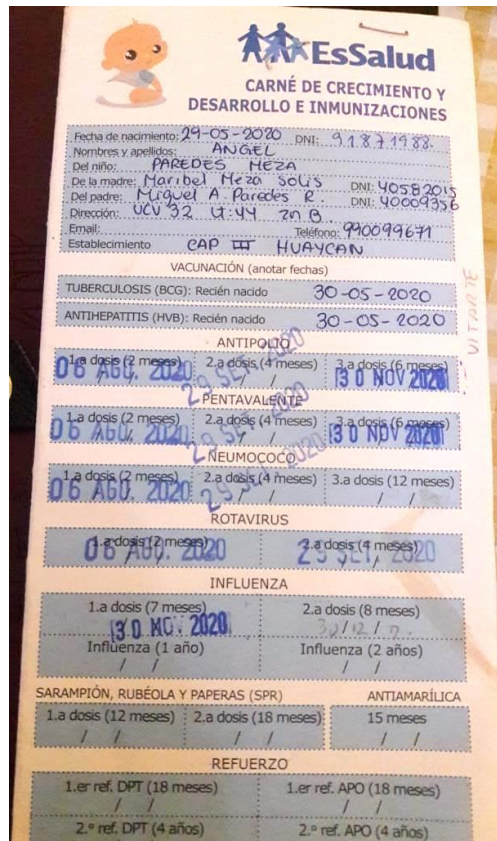 EsSalud
CARNÉ DE CRECIMIENTO Y
DESARROLLO E INMUNIZACIONES
Fecha de nacimiento: 29-05-2020 DNI: 91871988
Nombres y apellidos: ANGEL
Del niño: PAREDES MEZA
De la madre: Maribel Meza Solis DNI: 40582015
Del padre: Miguel A. Paredes R. DNI: 40009356
Dirección: UCV 32 Lt:44 Zn B
Email: Teléfono: 990099671
Establecimiento CAP III HUAYCAN
VITARTE
VACUNACIÓN (anotar fechas)
TUBERCULOSIS (BCG): Recién nacido 30-05-2020
ANTIHEPATITIS (HVB): Recién nacido 30-05-2020
ANTIPOLIO
1.a dosis (2 meses) 2.a dosis (4 meses) 3.a dosis (6 meses)
06 AGO. 2020 29 SET. 2020 30 NOV 2020
PENTAVALENTE
1.a dosis (2 meses) 2.a dosis (4 meses) 3.a dosis (6 meses)
06 AGO. 2020 29 SET. 2020 30 NOV 2020
NEUMOCOCO
1.a dosis (2 meses) 2.a dosis (4 meses) 3.a dosis (12 meses)
06 AGO. 2020 29 SET. 2020 / /
ROTAVIRUS
1.a dosis (2 meses) 2.a dosis (4 meses)
06 AGO. 2020 29 SET. 2020
INFLUENZA
1.a dosis (7 meses) 2.a dosis (8 meses)
30 NOV. 2020 30/12/
Influenza (1 año) Influenza (2 años)
/ / / /
SARAMPIÓN, RUBÉOLA Y PAPERAS (SPR) ANTIAMARÍLICA
1.a dosis (12 meses) 2.a dosis (18 meses) 15 meses
/ / / / / /
REFUERZO
1.er ref. DPT (18 meses) 1.er ref. APO (18 meses)
/ / / /
2.º ref. DPT (4 años) 2.º ref. APO (4 años)